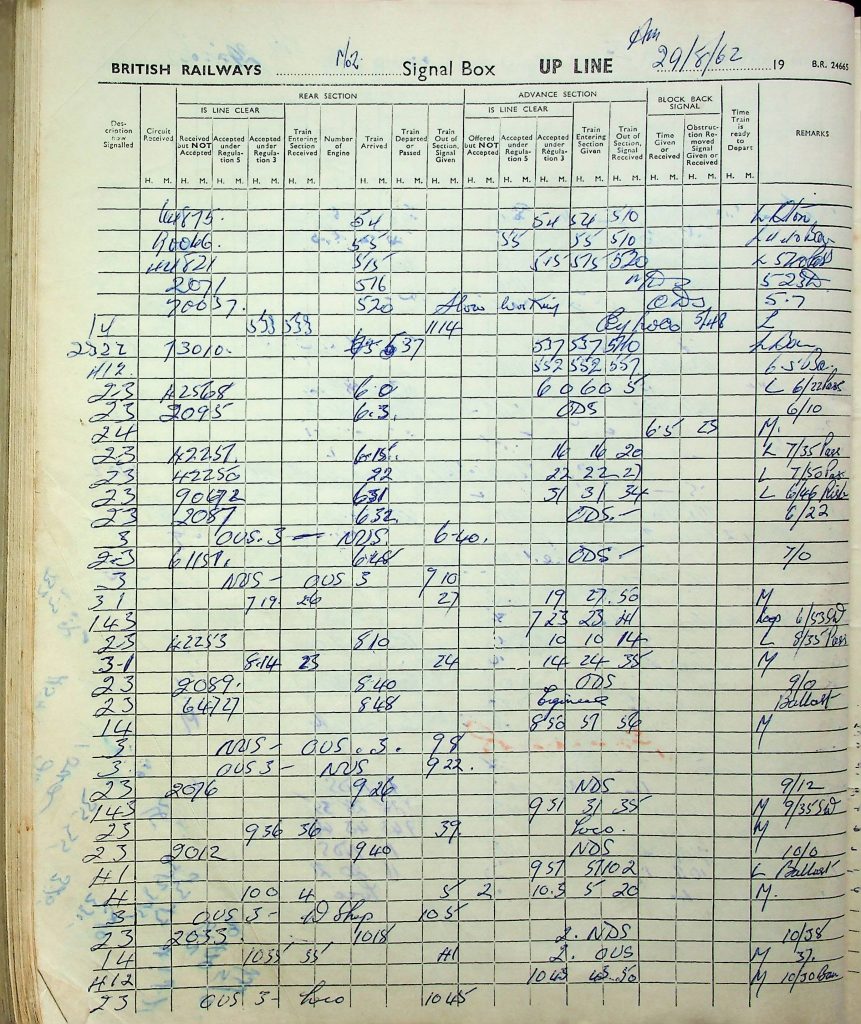 Pm
BRITISH RAILWAYS No 2 Signal Box UP LINE 29/8/62 19 B.R. 24665
REAR SECTION ADVANCE SECTION BLOCK BACK SIGNAL
IS LINE CLEAR IS LINE CLEAR
Description how Signalled Circuit Received Received but NOT Accepted Accepted under Regulation 5 Accepted under Regulation 3 Train Entering Section Received Number of Engine Train Arrived Train Departed or Passed Train Out of Section, Signal Given Offered but NOT Accepted Accepted under Regulation 5 Accepted under Regulation 3 Train Entering Section Given Train Out of Section, Signal Received Time Given or Received Obstruction Removed Signal Given or Received Time Train is ready to Depart REMARKS
H. M. H. M. H. M. H. M. H. M. H. M. H. M. H. M. H. M. H. M. H. M. H. M. H. M. H. M. H. M. H. M.
44875. 54 54 54 510 L
55 55 55 510 L
44821 515 515 515 520 L
2071 516 523
70037. 520 Above working ODS 5.7
14 533 533 1114 Loco 5/48 L
73010. 637 537 537 540 L
412. 552 552 557
23 42568 6.0 60 60 5 L 6/22 Pass
23 2095 6.3. ODS 6/10
24 6.5 25 M.
23 42251. 6.15. 16 16 20 L 7/35 Pass
23 42250 22 22 22 27 L 7/50 Pass
23 90672 631 31 31 34 L 6/46
23 2087 632 ODS. - 6/22
3 OUS. 3 — NUS. 6.40.
23 61151. 6.48 ODS - 7/0
3 NUS - OUS 3 910
31 7.19. 26 27 19 27. 50 M
143 723 23 41 Loop 6/53 SW
23 42253 810 10 10 14 L 8/35 Pass
3-1 8.14 23 24 14 24 35 M
23 2089. 840 ODS 9/0
23 64727 848 Engineers Ballast
14 850 51 56 M
3. NUS - OUS. 3. 98
3. OUS 3 - NUS 922.
23 2076 926 NDS 9/12
143 931 31 35 M 9/35 SW
23 936 36 39. Loco. M
23 2012 940 NDS 10/0
41 957 57 102 L Ballast
4 100 4 5 2 10.3 5 20 M.
3 OUS 3 - W Shop 1035
23 2033. 1018 2. NDS 10/38
14 1035 35 41 2. OUS M 37.
412 1043 43 50 M 10/30
23 OUS 3 - Loco 1045